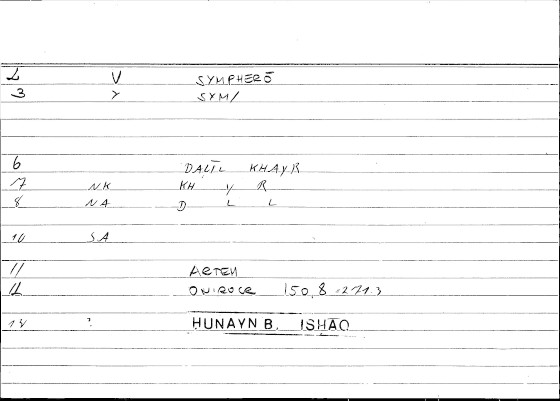 2 V SYMPHERŌ
3 Y SYM/
6 DALĪL KHAYR
7 NK KH Y R
8 NA D L L
10 SA
11 ARTEM
12 ONIROCR 150,8 - 271.3
14 ? HUNAYN B. ISHĀQ